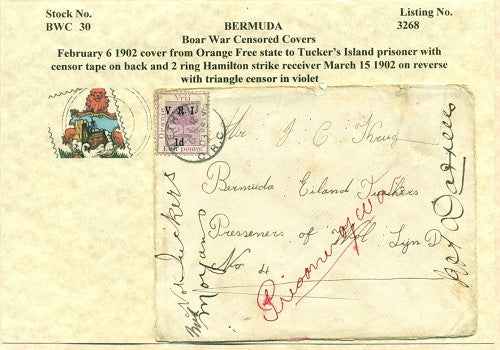 Stock No.
BWC 30
BERMUDA
Listing No.
3268
Boar War Censored Covers
February 6 1902 cover from Orange Free state to Tucker's Island prisoner with
censor tape on back and 2 ring Hamilton strike receiver March 15 1902 on reverse
with triangle censor in violet
V R I
1d
O.R.C.
Mr. J C Krug
Bermuda Eiland Tuckers
Presseners of War Lijn D
No 4.
Prisoner of War